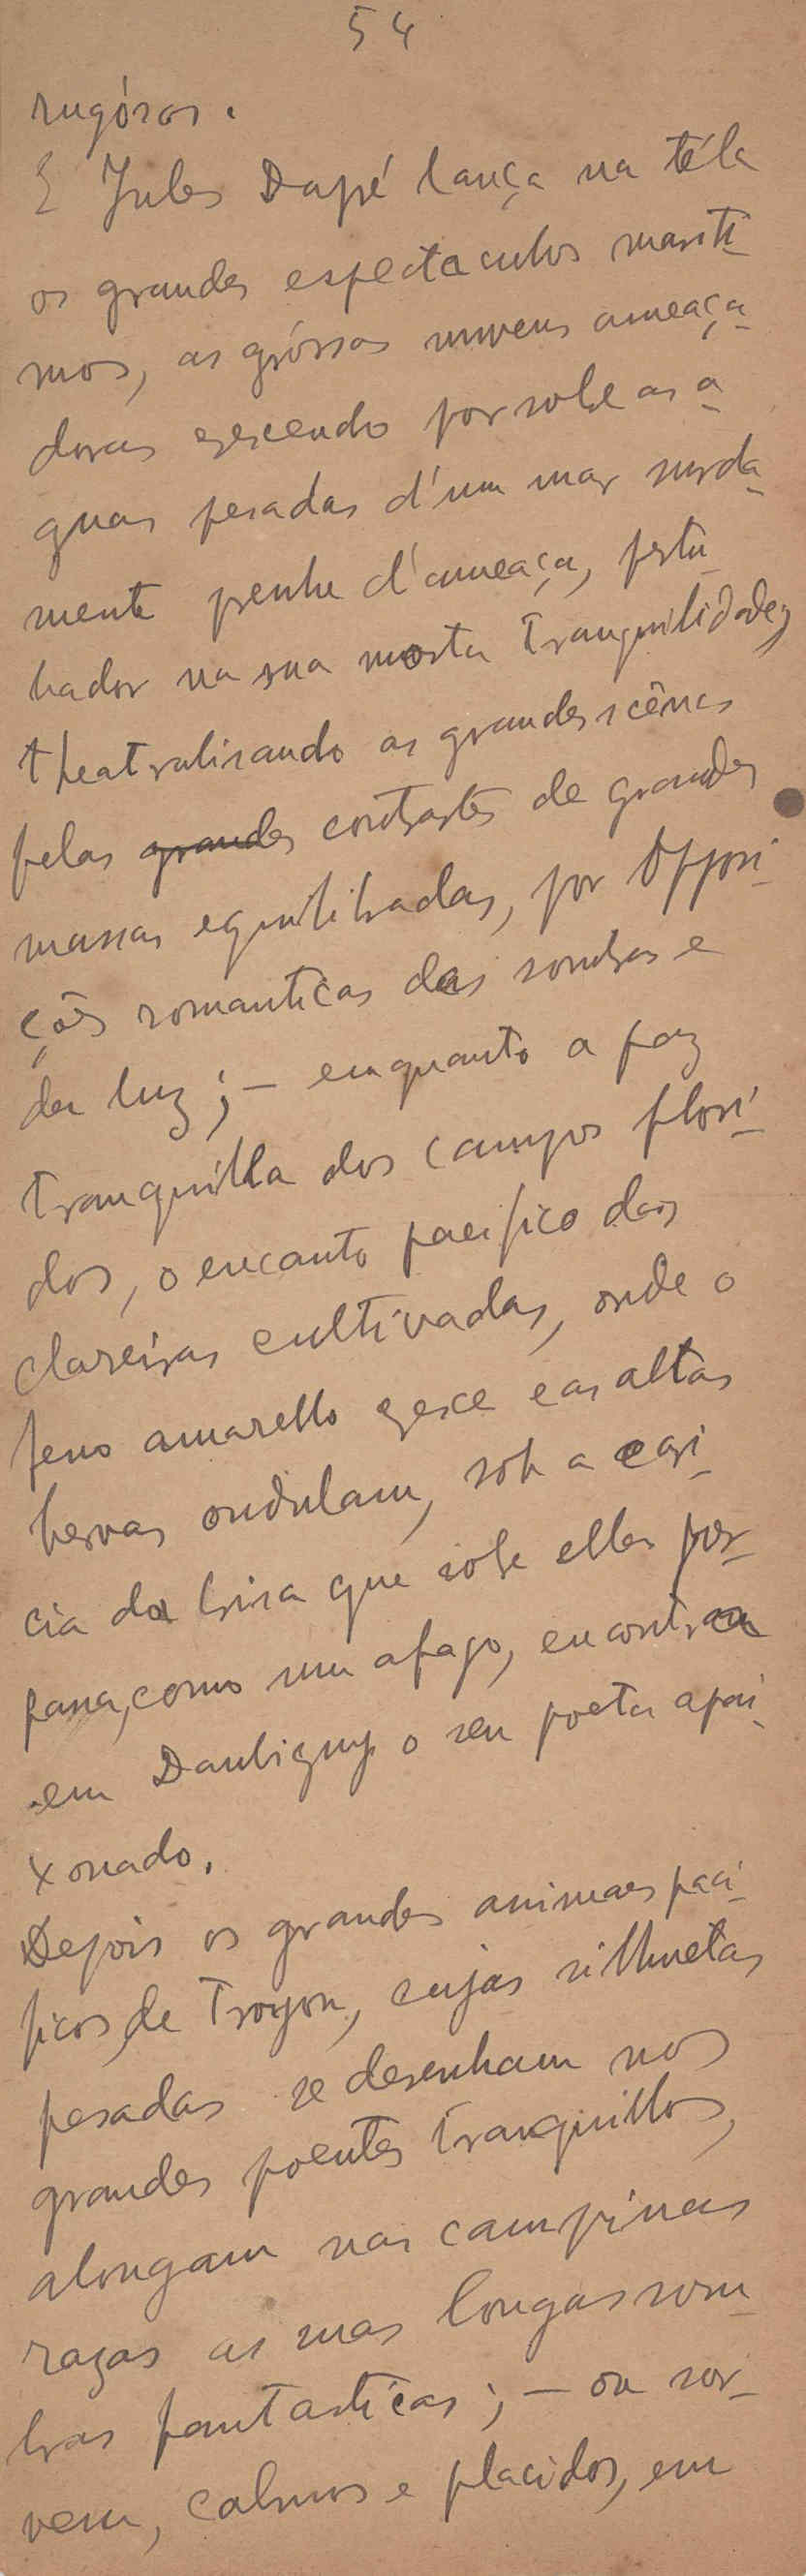 54
rugósos.
E Jules Dupré lança na téla
os grandes espectaculos mariti-
mos, as gróssas nuvens ameaça-
doras crescendo por sobre as a-
guas pesadas d'um mar surda-
mente prenhe d'ameaça, pertu-
bador na sua morta tranquilidade,
theatralisando as grandes scênas
pelas grandes contrastes de grandes
massas equilibradas, por opposi-
ções romanticas das sombras e
da luz; — emquanto a paz
tranquilla dos campos flori-
dos, o encanto pacifico das
clareiras cultivadas, onde o
feno amarello cresce e as altas
hervas ondulam, sob a cari-
cia da brisa que sobre ellas per-
passa, como um afago, encontram
em Daubigny o seu poeta apai-
xonado.
Depois os grandes animaes paci-
ficos de Troyon, cujas silhuetas
pesadas se desenham nos
grandes poentes tranquillos,
alongam nas campinas
razas as suas longas som-
bras fantasticas; — ou sor-
vem, calmos e placidos, em